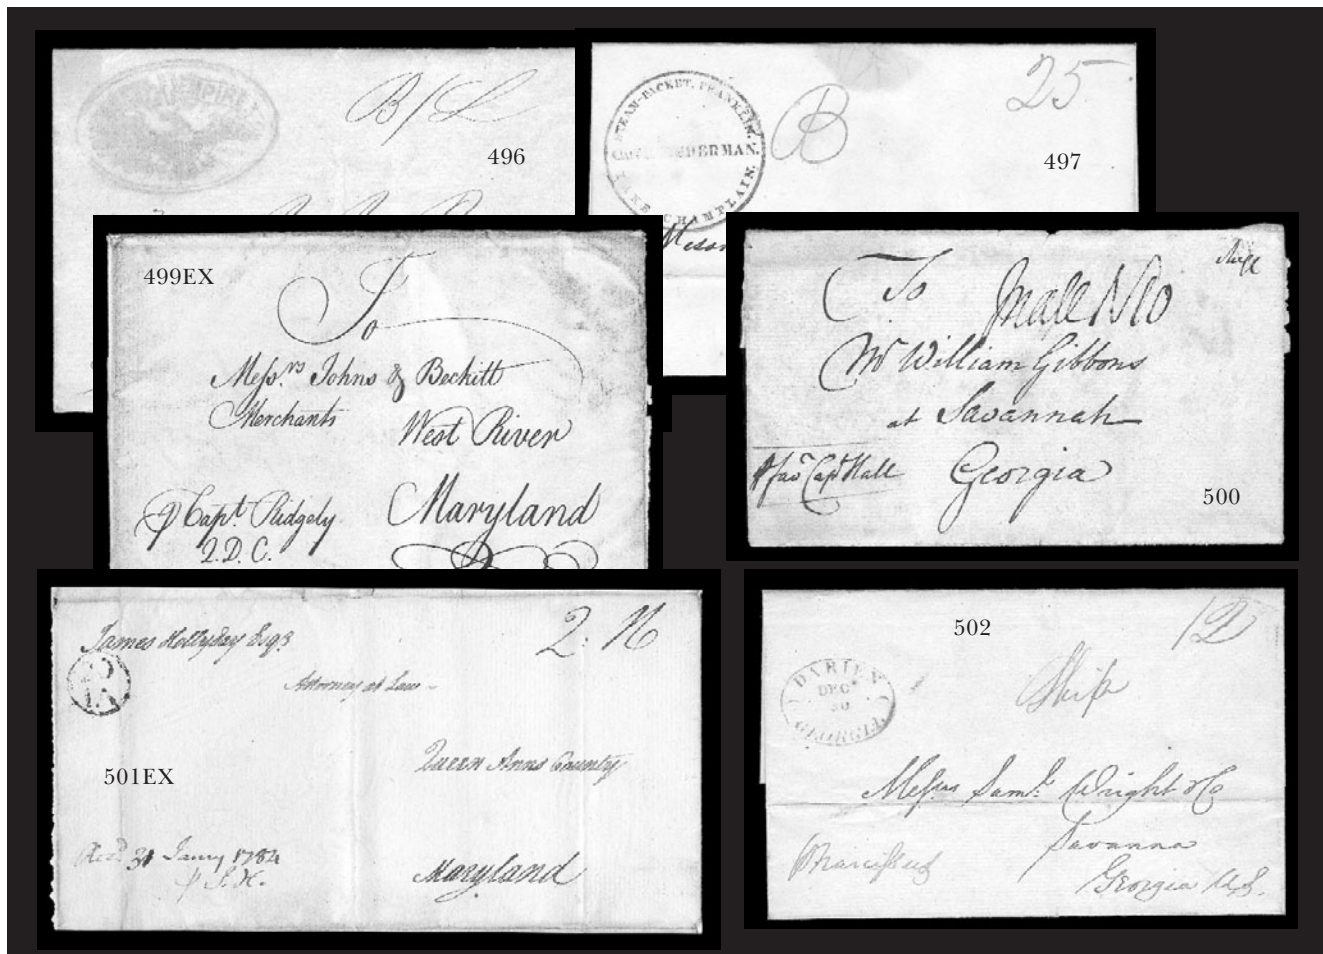 EMPIRE
B/L
496
STEAM-PACKET, FRANKLIN.
ERMAN.
LAKE CHAMPLAIN.
B
25
497
499EX
To
Messrs Johns & Beckitt
Merchants
West River
Maryland
Capt Ridgely
Q.D.C.
To
Mr William Gibbons
at Savannah
Georgia
Capt Hall
500
James Hollyday Esqr
2: N
Attorney at Law
IA
Queen Anns County
501EX
31 Janry 1784
Maryland
502
12
DARIEN
DEC
30
GEORGIA
Ship
Messrs Saml Wright & Co
Savanna
Georgia U.S.